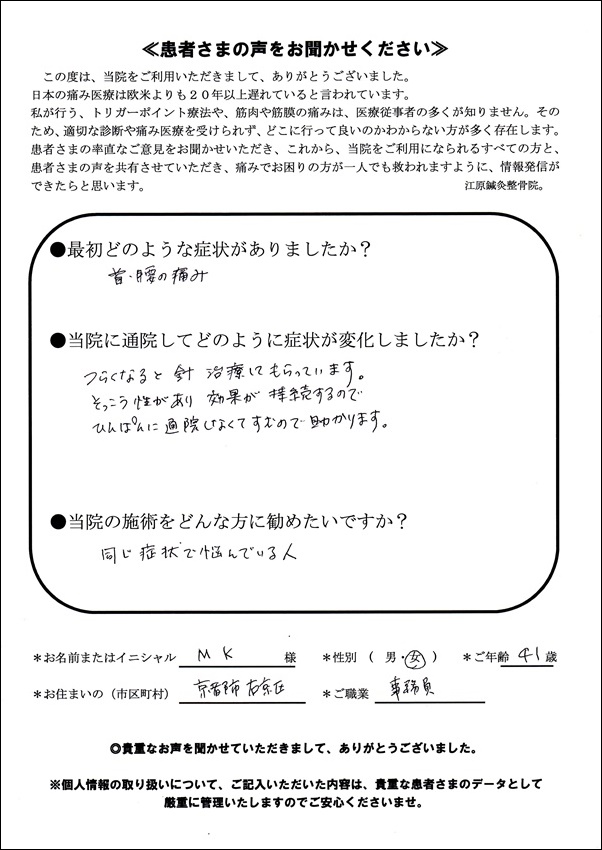 ≪患者さまの声をお聞かせください≫
この度は、当院をご利用いただきまして、ありがとうございました。
日本の痛み医療は欧米よりも２０年以上遅れていると言われています。
私が行う、トリガーポイント療法や、筋肉や筋膜の痛みは、医療従事者の多くが知りません。その
ため、適切な診断や痛み医療を受けられず、どこに行って良いのかわからない方が多く存在します。
患者さまの率直なご意見をお聞かせいただき、これから、当院をご利用になられるすべての方と、
患者さまの声を共有させていただき、痛みでお困りの方が一人でも救われますように、情報発信が
できたらと思います。 江原鍼灸整骨院。
●最初どのような症状がありましたか？
首・腰の痛み
●当院に通院してどのように症状が変化しましたか？
つらくなると針治療してもらっています。
そっこう性があり効果が持続するので
ひんぱんに通院しなくてすむので助かります。
●当院の施術をどんな方に勧めたいですか？
同じ症状で悩んでいる人
＊お名前またはイニシャル MK 様 ＊性別（男・女） ＊ご年齢 41歳
＊お住まいの（市区町村） 京都市右京区 ＊ご職業 事務員
◎貴重なお声を聞かせていただきまして、ありがとうございました。
※個人情報の取り扱いについて、ご記入いただいた内容は、貴重な患者さまのデータとして
厳重に管理いたしますのでご安心くださいませ。